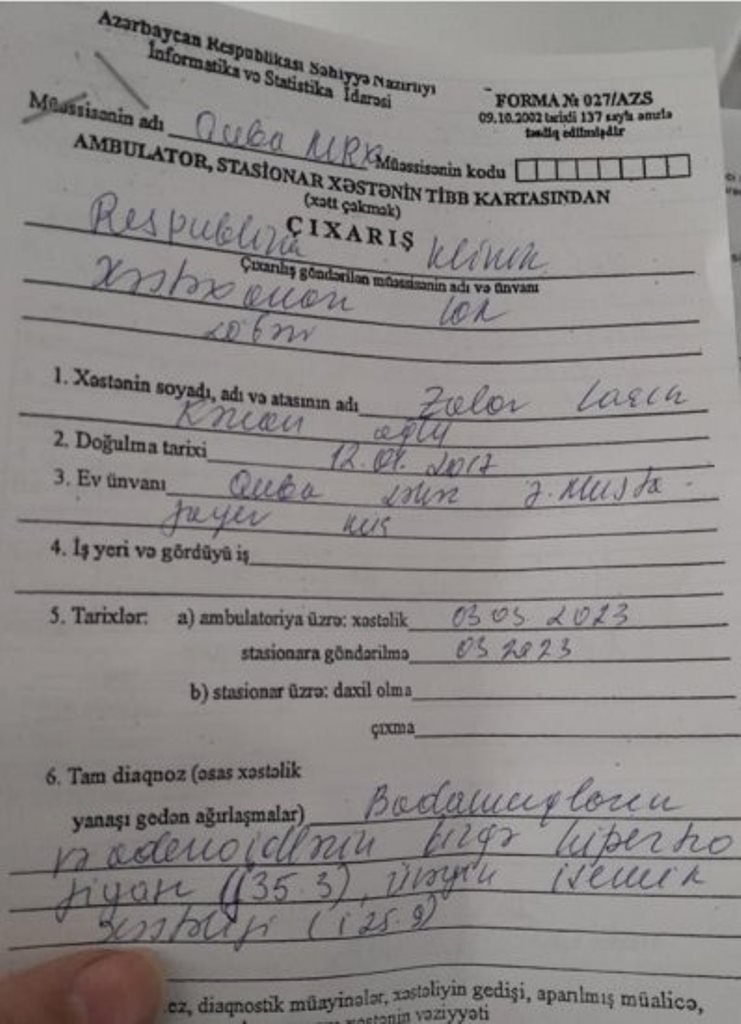 Azərbaycan Respublikası Səhiyyə Nazirliyi
İnformatika və Statistika İdarəsi
FORMA № 027/AZS
09.10.2002 tarixli 137 saylı əmrlə
təsdiq edilmişdir
Müəssisənin adı Quba MRX Müəssisənin kodu
AMBULATOR, STASİONAR XƏSTƏNİN TİBB KARTASINDAN
(xətti çəkmək)
ÇIXARIŞ
Respublika klinik
Çıxarılış göndərilən müəssisənin adı və ünvanı
xəstəxananın
1. Xəstənin soyadı, adı və atasının adı Laçın
oğlu
2. Doğulma tarixi 12.01.2017
3. Ev ünvanı Quba
4. İş yeri və gördüyü iş
5. Tarixlər: a) ambulatoriya üzrə: xəstəlik 03 03 2023
stasionara göndərilmə 03 2023
b) stasionar üzrə: daxil olma
çıxma
6. Tam diaqnoz (əsas xəstəlik
yanaşı gedən ağırlaşmalar) Badamcıqların
və adenoidlərin birgə hipertro
fiyası (j35.3), ürəyin işemik
xəstəliyi (i25.9)
ez, diaqnostik müayinələr, xəstəliyin gedişi, aparılmış müalicə,
xəstənin vəziyyəti